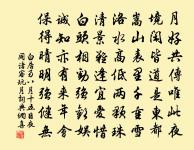 月好共傳唯此夜
境閑皆道是東都
嵩山表裏千重雪
洛水高低兩顆珠
清景難逢宜愛惜
白頭相勸強歡娛
誠知亦有來年會
保得晴明強健無
白居易八月十五日夜
同諸客玩月詞典網